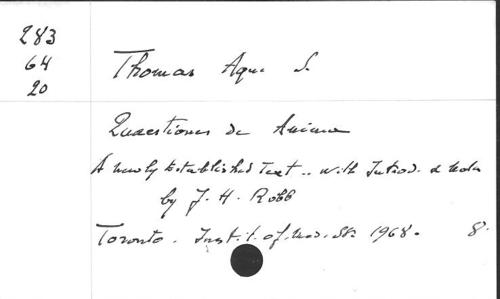 283
64
20
Thomas Aqu. S.
Quaestiones de Anima
A newly established Text .. with Introd. & Notes
by J. H. Robb
Toronto. Instit. of Med. St. 1968. 8.